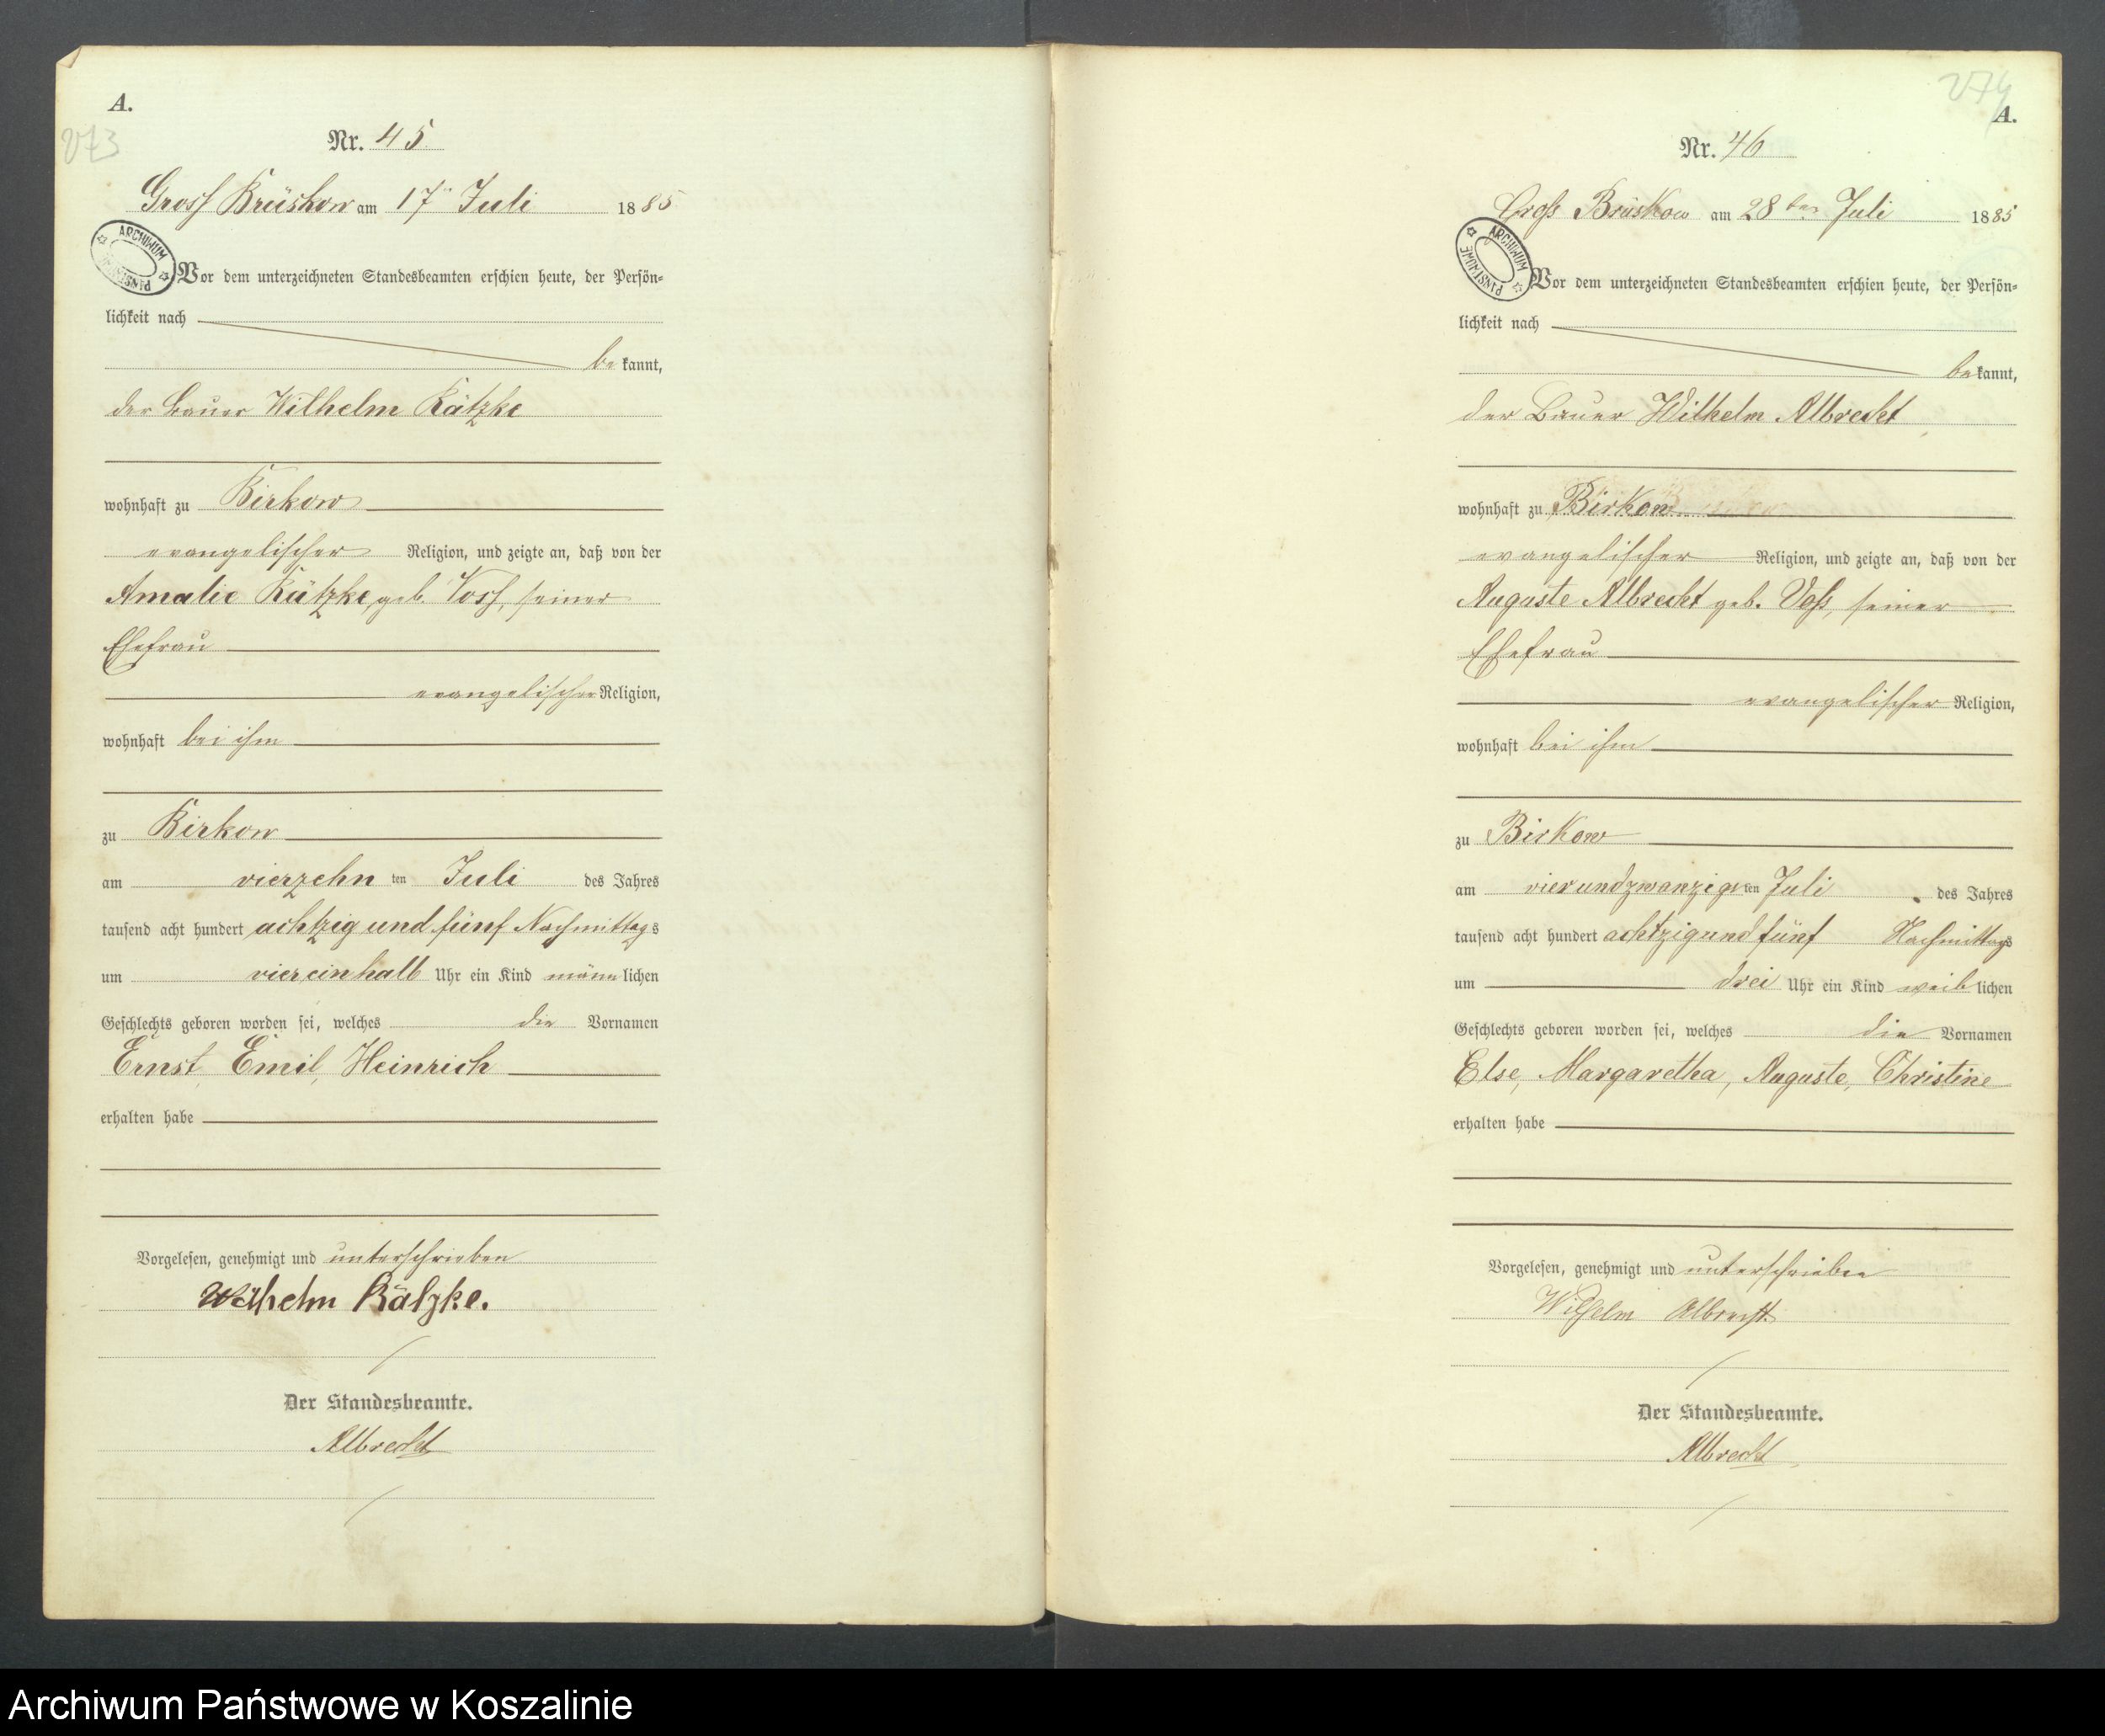 A.
273
Nr. 45
Gross Brüskow am 17ten Juli 1885
ARCHIWUM PAŃSTWOWE
Vor dem unterzeichneten Standesbeamten erschien heute, der Persön-
lichkeit nach
bekannt,
der Bauer Wilhelm Rätzke
wohnhaft zu Birkow
evangelischer Religion, und zeigte an, daß von der
Amalie Rätzke, geb. Voss, seiner
Ehefrau
evangelischer Religion,
wohnhaft bei ihm
zu Birkow
am vierzehn ten Juli des Jahres
tausend acht hundert achtzig und fünf Nachmittags
um viereinhalb Uhr ein Kind männlichen
Geschlechts geboren worden sei, welches die Vornamen
Ernst, Emil, Heinrich
erhalten habe
Vorgelesen, genehmigt und unterschrieben
Wilhelm Rätzke.
Der Standesbeamte.
Albrecht
274
A.
Nr. 46
Groß Brüskow am 28ten Juli 1885
ARCHIWUM PAŃSTWOWE
Vor dem unterzeichneten Standesbeamten erschien heute, der Persön-
lichkeit nach
bekannt,
der Bauer Wilhelm Albrecht
wohnhaft zu Birkow
evangelischer Religion, und zeigte an, daß von der
Auguste Albrecht geb. Voß, seiner
Ehefrau
evangelischer Religion,
wohnhaft bei ihm
zu Birkow
am vierundzwanzigsten Juli des Jahres
tausend acht hundert achtzigundfünf Nachmittags
um drei Uhr ein Kind weiblichen
Geschlechts geboren worden sei, welches die Vornamen
Else, Margaretha, Auguste, Christine
erhalten habe
Vorgelesen, genehmigt und unterschrieben
Wilhelm Albrecht
Der Standesbeamte.
Albrecht
Archiwum Państwowe w Koszalinie